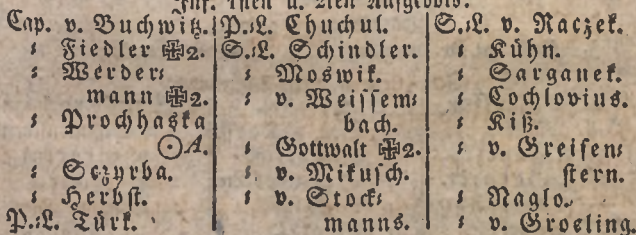 Inf. 1sten u. 2ten Aufgebots.
Cap. v. Buchwitz.
⸗ Fiedler ✠2.
⸗ Werder⸗
mann ✠2.
⸗ Prochhaska
☉A.
⸗ Sczyrba.
⸗ Herbst.
P.⸗L. Türk.
P.⸗L. Chuchul.
S.⸗L. Schindler.
⸗ Moswik.
⸗ v. Weissem⸗
bach.
⸗ Gottwalt ✠2.
⸗ v. Mikusch.
⸗ v. Stock⸗
manns.
S.⸗L. v. Raczek.
⸗ Kühn.
⸗ Sarganek.
⸗ Cochlovius.
⸗ Kiß.
⸗ v. Greifen⸗
stern.
⸗ Naglo.
⸗ v. Groeling.